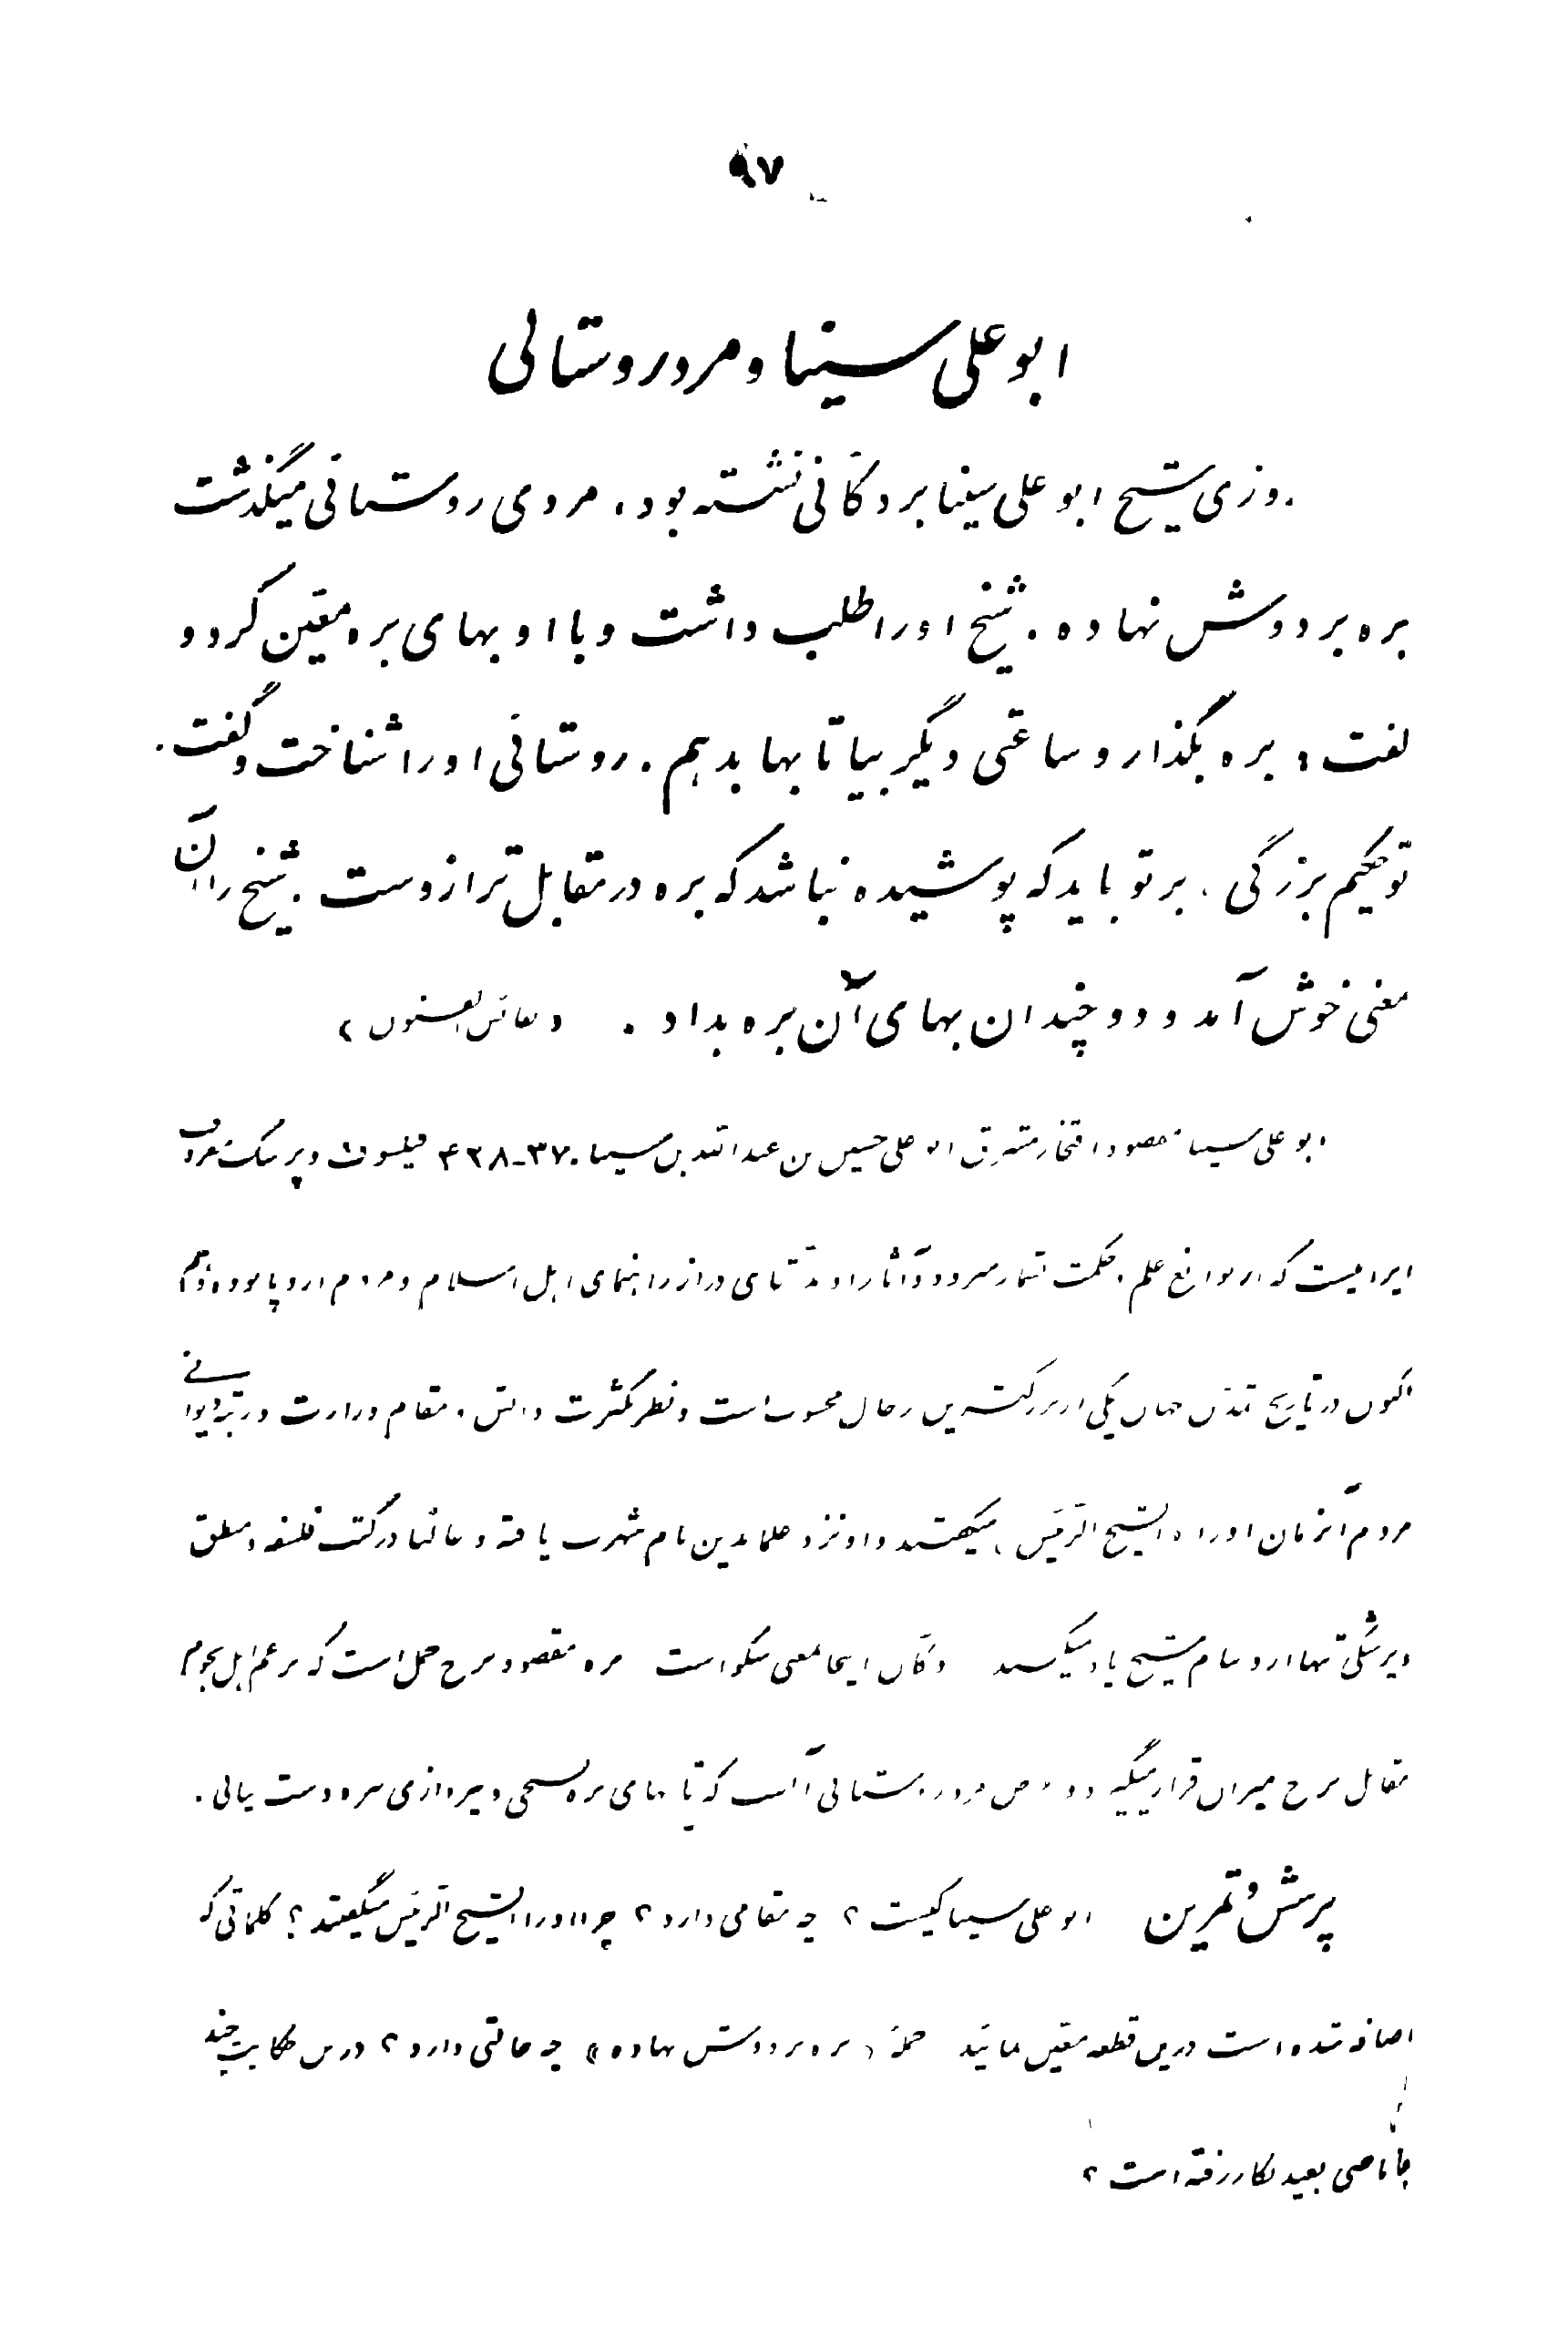 ۹۷
ابوعلی سینا و مرد روستائی
روزی شیخ ابوعلی سینا بر دکانی نشسته بود، مردی روستائی میگذشت
بره بر دوش نهاده. شیخ او را طلب داشت و با او بهای بره معین کرد و
گفت، بره بگذار و ساعتی دیگر بیا تا بها بدهم. روستائی او را شناخت و گفت.
تو حکیم بزرگی، بر تو باید که پوشیده نباشد که بره در مقابل ترازوست. شیخ را آن
معنی خوش آمد و دو چندان بهای آن بره بداد. «نفائس الفنون»
ابوعلی سینا مقصود افتخار مشرق ابوعلی حسین بن عبدالله بن سینا ۳۷۰-۴۲۸ فیلسوف و پزشک معروف
ایرانیست که از نوابغ علم و حکمت بشمار میرود و آثار او مدتهای دراز راهنمای اهل اسلام و مردم اروپا بوده و هم
اکنون در تاریخ تمدن جهان یکی از بزرگترین رجال محسوب است و نظر بکثرت دانش و مقام وزارت و رتبه دیوانی
مردم آنزمان او را «الشیخ الرئیس» میگفتند و او نزد علما بدین نام شهرت یافته و غالبا در کتب فلسفه و منطق
و پزشکی تنها از او بنام شیخ یاد میکنند دکان اینجا بمعنی سکو است بره مقصود برج حمل است که بزعم اهل نجوم
مقابل برج میزان قرار میگیرد و غرض مرد روستائی آنست که تا بهای بره نسنجی و نپردازی ببره دست نیابی.
پرسش و تمرین ابوعلی سینا کیست؟ چه مقامی دارد؟ چرا او را الشیخ الرئیس میگفتند؟ کلماتی که
اضافه شده است درین قطعه معین نمائید جملۀ «بره بر دوش نهاده» چه حالتی دارد؟ درین حکایت چند
جا ماضی بعید بکار رفته است؟